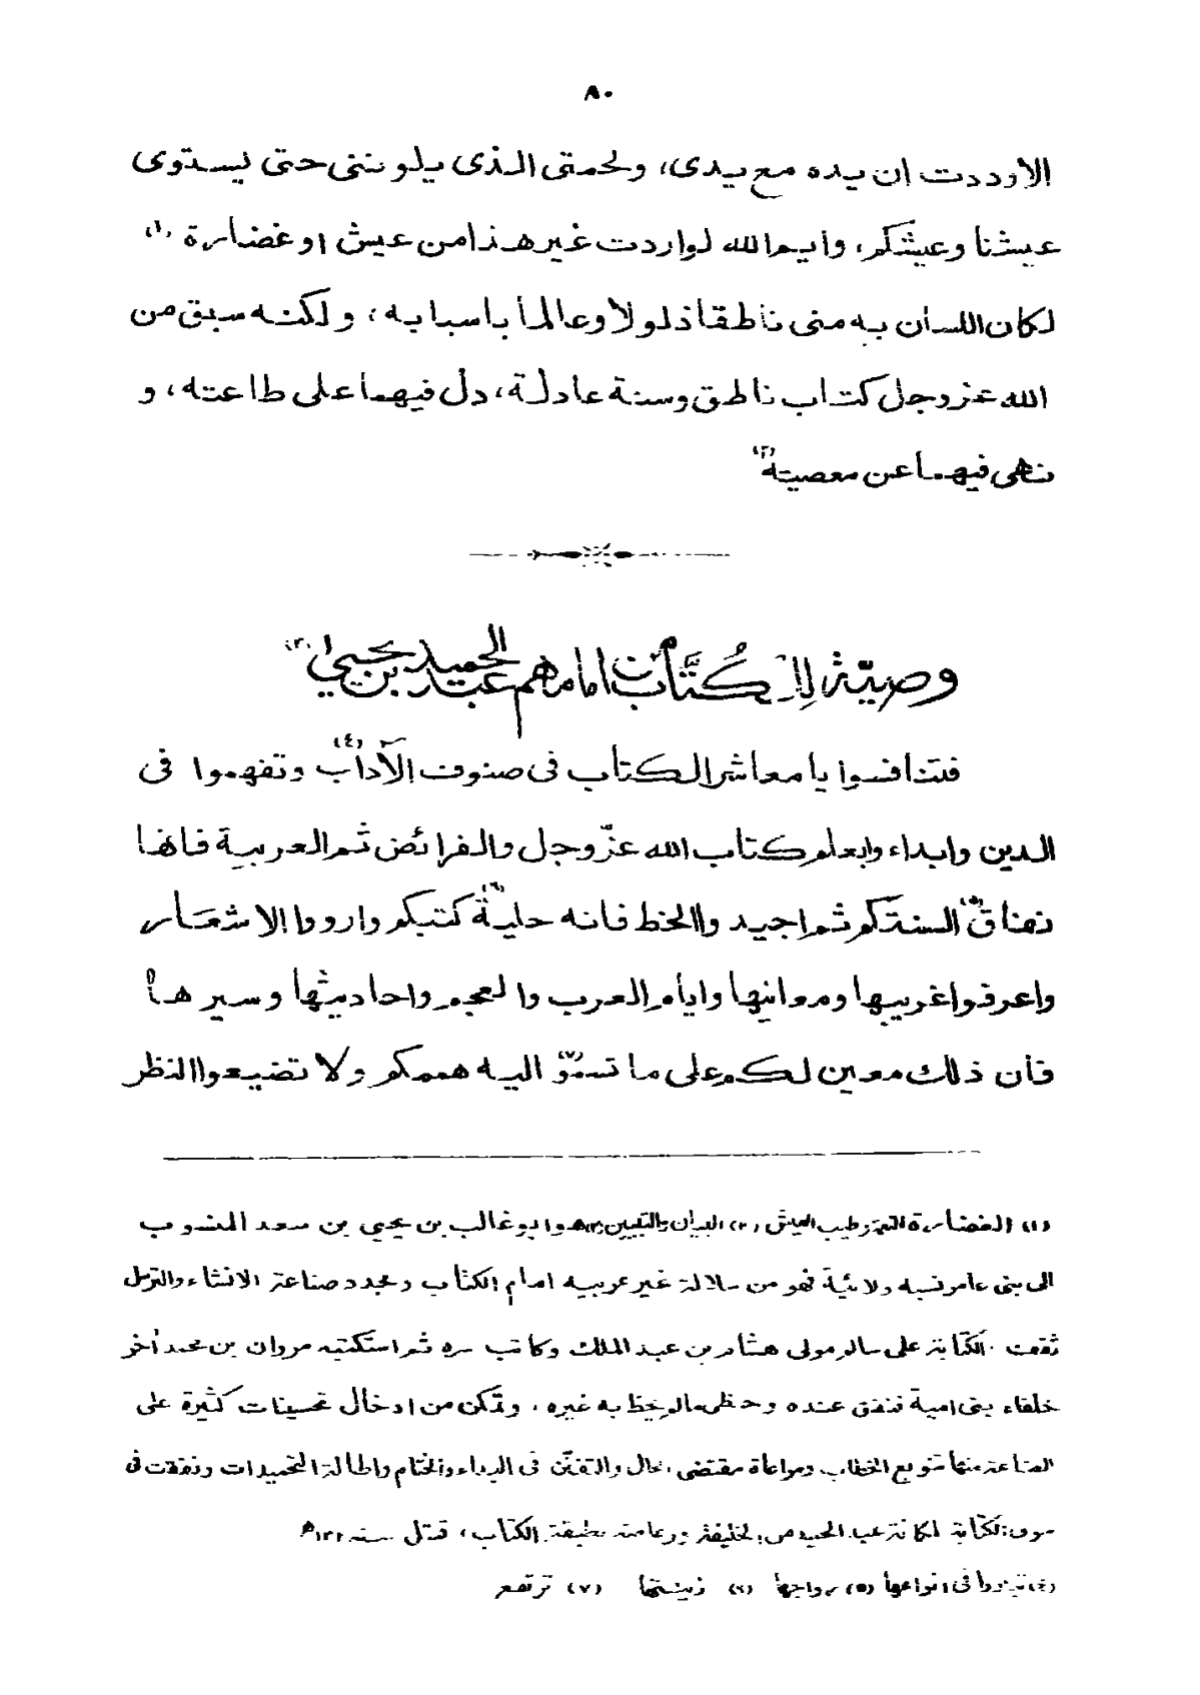 ٨٠
الا وددت ان يده مع يدى، ولحمتى الذى يلوننى حتى يستوى
عيشنا وعيشكم، وايم الله لو اردت غير هذا من عيش او غضارة (١)
لكان اللسان به منى ناطقا ذلولا وعالما باسبابه، ولكنه سبق من
الله عزوجل كتاب ناطق وسنة عادلة، دل فيهما على طاعته، و
نهى فيهما عن معصيته (٢)
وصيّة لِلكُتَّاب من امامهم عبد الحميد بن يحيىٰ (٣)
فتنافسوا يا معاشر الكتاب فى صنوف الآداب (٤) وتفهموا فى
الدين وابداءوا بعلم كتاب الله عزّوجل والفرائض ثم العربية فانها
نفاق (٥) السنتكم ثم اجيدوا الخط فانه حلية (٦) كتبكم وارووا الاشعار
واعرفوا غريبها ومعانيها وايام العرب والعجم واحاديثها وسيرها
فان ذلك معين لكم على ما تسمو (٧) اليه هممكم ولا تضيعوا النظر
(١) الغضارة النعمة وطيب العيش (٢) البيان والتبيين (٣) هو ابو غالب بن يحيى بن سعد المنسوب
الى بنى عامر نسبه ولائية فهو من سلالة غير عربيه امام الكتاب ومجدد صناعة الانشاء والترسل
ثقف الكتابة على سالم مولى هشام بن عبد الملك وكاتب سره ثم استكتبه مروان بن محمد آخر
خلفاء بنى امية فنفق عنده وحظى مالم يحظ به غيره، وتمكن من ادخال تحسينات كثيرة على
الصناعة منها تنويع الخطاب ومراعاة مقتضى الحال والتفنّن فى البداء والختام واطالة التحميدات ونفقت فى
سوق الكتابة لمكانة عبد الحميد من الخليفة وزعامته بطبقة الكتاب، قتل سنه ١٣٢ھ
(٤) فى انواعها (٥) رواجها (٦) زينتها (٧) ترتفع